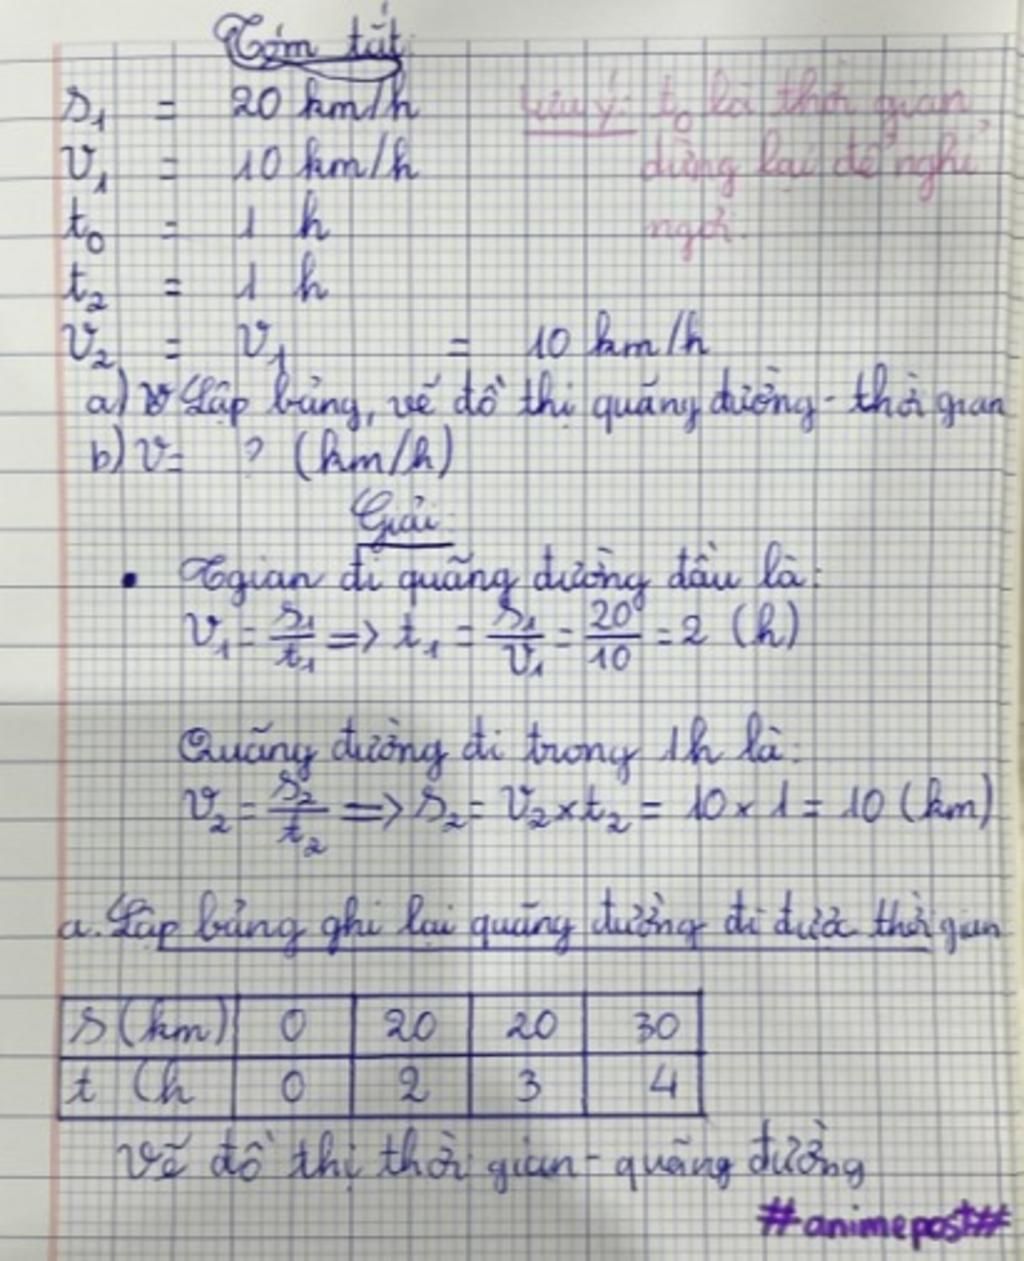 Tóm tắt
s₁ = 20 km/h
Lưu ý: t₀ là thời gian
dừng lại để nghỉ
ngơi.
v₁ = 10 km/h
t₀ = 1 h
t₂ = 1 h
v₂ = v₁ = 10 km/h
a) Lập bảng, vẽ đồ thị quãng đường - thời gian
b) v = ? (km/h)
Giải
• Tgian đi quãng đường đầu là:
v₁ = s₁/t₁ => t₁ = s₁/v₁ = 20/10 = 2 (h)
Quãng đường đi trong 1h là:
v₂ = s₂/t₂ => s₂ = v₂ × t₂ = 10 × 1 = 10 (km)
a. Lập bảng ghi lại quãng đường đi thời gian
s (km) 0 20 20 30
t (h 0 2 3 4
Vẽ đồ thị thời gian - quãng đường
#animepost#